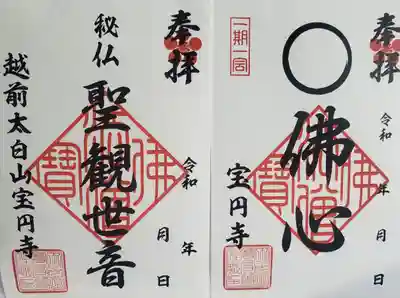 奉拝
一期一会
佛心
令和 年 月 日
宝円寺
奉拝
秘仏
聖観世音
令和 年 月 日
越前太白山宝円寺